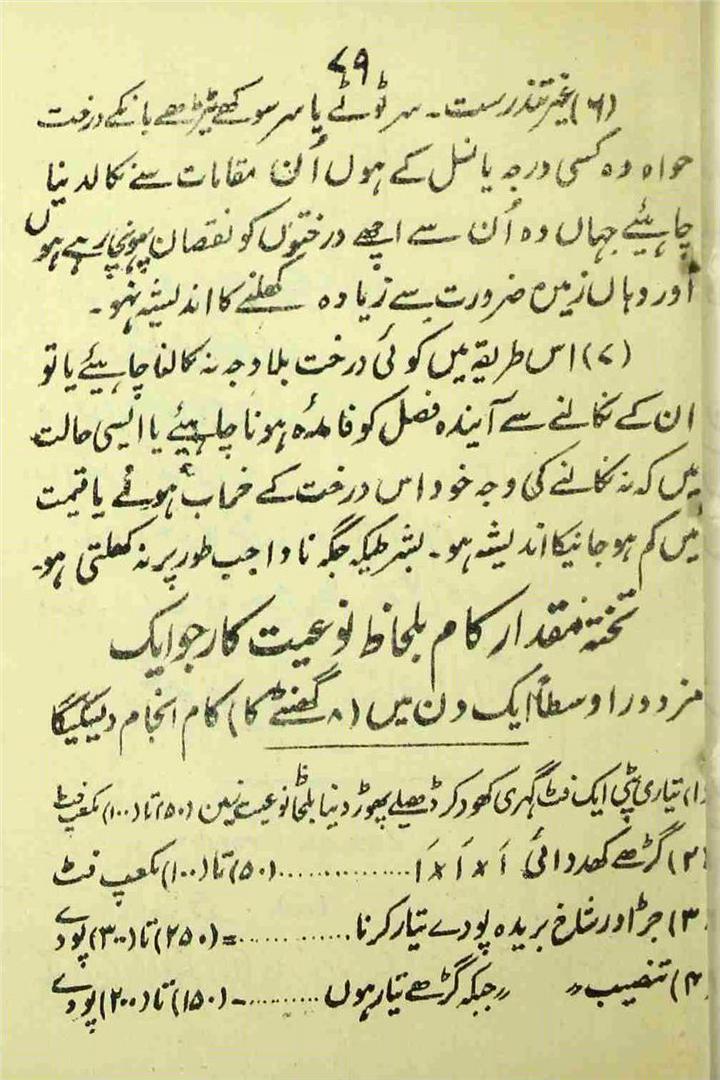 ۷۹
(۶) غیر تندرست۔ سر ٹوٹے یا سر سوکھے ٹیڑھے بانکے درخت
خواہ وہ کسی درجہ یا نسل کے ہوں اُن مقامات سے نکالدینا
چاہیئے جہاں وہ اُن سے اچھے درختوں کو نقصان پہونچا رہے ہوں
اور وہاں زمین ضرورت سے زیادہ کھلنے کا اندیشہ نہو۔
(۷) اس طریقہ میں کوئی درخت بلا وجہ نہ کالنا چاہیئے یا تو
ان کے نکالنے سے آیندہ فصل کو فائدہ ہونا چاہیئے یا ایسی حالت
میں کہ نہ نکالنے کی وجہ خود اس درخت کے خراب ہوئے یا قیمت
میں کم ہو جانیکا اندیشہ ہو۔ بشرطیکہ جگہ ناواجب طور پر نہ کھلتی ہو۔
تختہ مقدار کام بلحاظ نوعیت کار جو ایک
مزدور اوسطاً ایک دن میں (۸ گھنٹے کا) کام انجام دیسکیگا
(۱) تیاری پٹی ایک فٹ گہری کھود کر ڈھیلے پھوڑ دینا بلحاظ نوعیت زمین (۵۰) تا (۱۰۰) مکعب فٹ
(۲) گڑھے کھدوائی اَ × اَ × اَ .............. (۵۰) تا (۱۰۰) مکعب فٹ
(۳) جڑ اور شاخ بریدہ پودے تیار کرنا ............ = (۲۵۰) تا (۳۰۰) پودے
(۴) تنصیب 〃 〃 جبکہ گڑھے تیار ہوں .......... - (۱۵۰) تا (۲۰۰) پودے